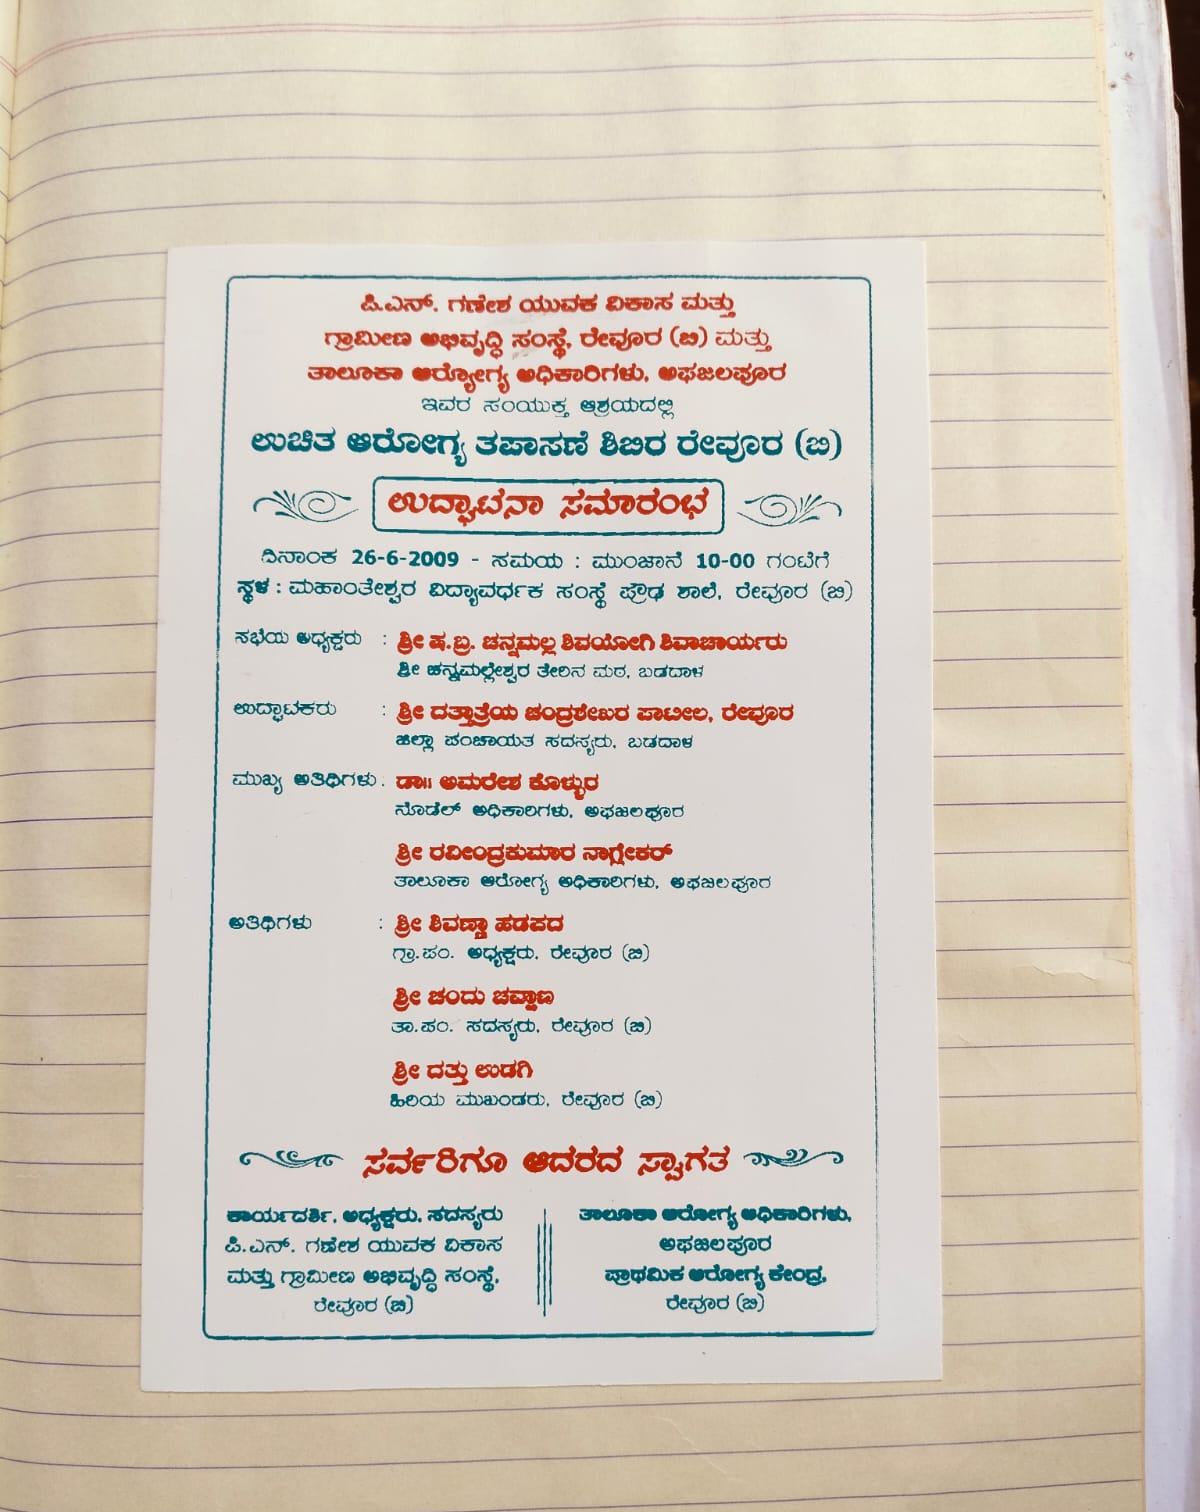 ಪಿ.ಎನ್. ಗಣೇಶ ಯುವಕ ವಿಕಾಸ ಮತ್ತು
ಗ್ರಾಮೀಣ ಅಭಿವೃದ್ಧಿ ಸಂಸ್ಥೆ, ರೇವೂರ (ಬಿ) ಮತ್ತು
ತಾಲೂಕಾ ಆರ‍್ಯೋಗ್ಯ ಅಧಿಕಾರಿಗಳು, ಅಫಜಲಪೂರ
ಇವರ ಸಂಯುಕ್ತ ಆಶ್ರಯದಲ್ಲಿ
ಉಚಿತ ಆರೋಗ್ಯ ತಪಾಸಣೆ ಶಿಬಿರ ರೇವೂರ (ಬಿ)
ಉದ್ಘಾಟನಾ ಸಮಾರಂಭ
ದಿನಾಂಕ 26-6-2009 - ಸಮಯ : ಮುಂಜಾನೆ 10-00 ಗಂಟೆಗೆ
ಸ್ಥಳ : ಮಹಾಂತೇಶ್ವರ ವಿದ್ಯಾವರ್ಧಕ ಸಂಸ್ಥೆ ಪ್ರೌಢ ಶಾಲೆ, ರೇವೂರ (ಬಿ)
ಸಭೆಯ ಅಧ್ಯಕ್ಷರು : ಶ್ರೀ ಷ.ಬ್ರ. ಚನ್ನಮಲ್ಲ ಶಿವಯೋಗಿ ಶಿವಾಚಾರ್ಯರು
ಶ್ರೀ ಚನ್ನಮಲ್ಲೇಶ್ವರ ತೇರಿನ ಮಠ, ಬಡದಾಳ
ಉದ್ಘಾಟಕರು : ಶ್ರೀ ದತ್ತಾತ್ರೆಯ ಚಂದ್ರಶೇಖರ ಪಾಟೀಲ, ರೇವೂರ
ಜಿಲ್ಲಾ ಪಂಚಾಯತ ಸದಸ್ಯರು, ಬಡದಾಳ
ಮುಖ್ಯ ಅತಿಥಿಗಳು : ಡಾ|| ಅಮರೇಶ ಕೊಳ್ಳುರ
ನೊಡೆಲ್ ಅಧಿಕಾರಿಗಳು, ಅಫಜಲಪೂರ
ಶ್ರೀ ರವೀಂದ್ರಕುಮಾರ ನಾಗ್ಲೇಕರ್
ತಾಲೂಕಾ ಆರೋಗ್ಯ ಅಧಿಕಾರಿಗಳು, ಅಫಜಲಪೂರ
ಅತಿಥಿಗಳು : ಶ್ರೀ ಶಿವಣ್ಣಾ ಹಡಪದ
ಗ್ರಾ.ಪಂ. ಅಧ್ಯಕ್ಷರು, ರೇವೂರ (ಬಿ)
ಶ್ರೀ ಚಂದು ಚವ್ಹಾಣ
ತಾ.ಪಂ. ಸದಸ್ಯರು, ರೇವೂರ (ಬಿ)
ಶ್ರೀ ದತ್ತು ಉಡಗಿ
ಹಿರಿಯ ಮುಖಂಡರು, ರೇವೂರ (ಬಿ)
ಸರ್ವರಿಗೂ ಆದರದ ಸ್ವಾಗತ
ಕಾರ್ಯದರ್ಶಿ, ಅಧ್ಯಕ್ಷರು, ಸದಸ್ಯರು
ಪಿ.ಎನ್. ಗಣೇಶ ಯುವಕ ವಿಕಾಸ
ಮತ್ತು ಗ್ರಾಮೀಣ ಅಭಿವೃದ್ಧಿ ಸಂಸ್ಥೆ,
ರೇವೂರ (ಬಿ)
ತಾಲೂಕಾ ಆರೋಗ್ಯ ಅಧಿಕಾರಿಗಳು,
ಅಫಜಲಪೂರ
ಪ್ರಾಥಮಿಕ ಆರೋಗ್ಯ ಕೇಂದ್ರ,
ರೇವೂರ (ಬಿ)